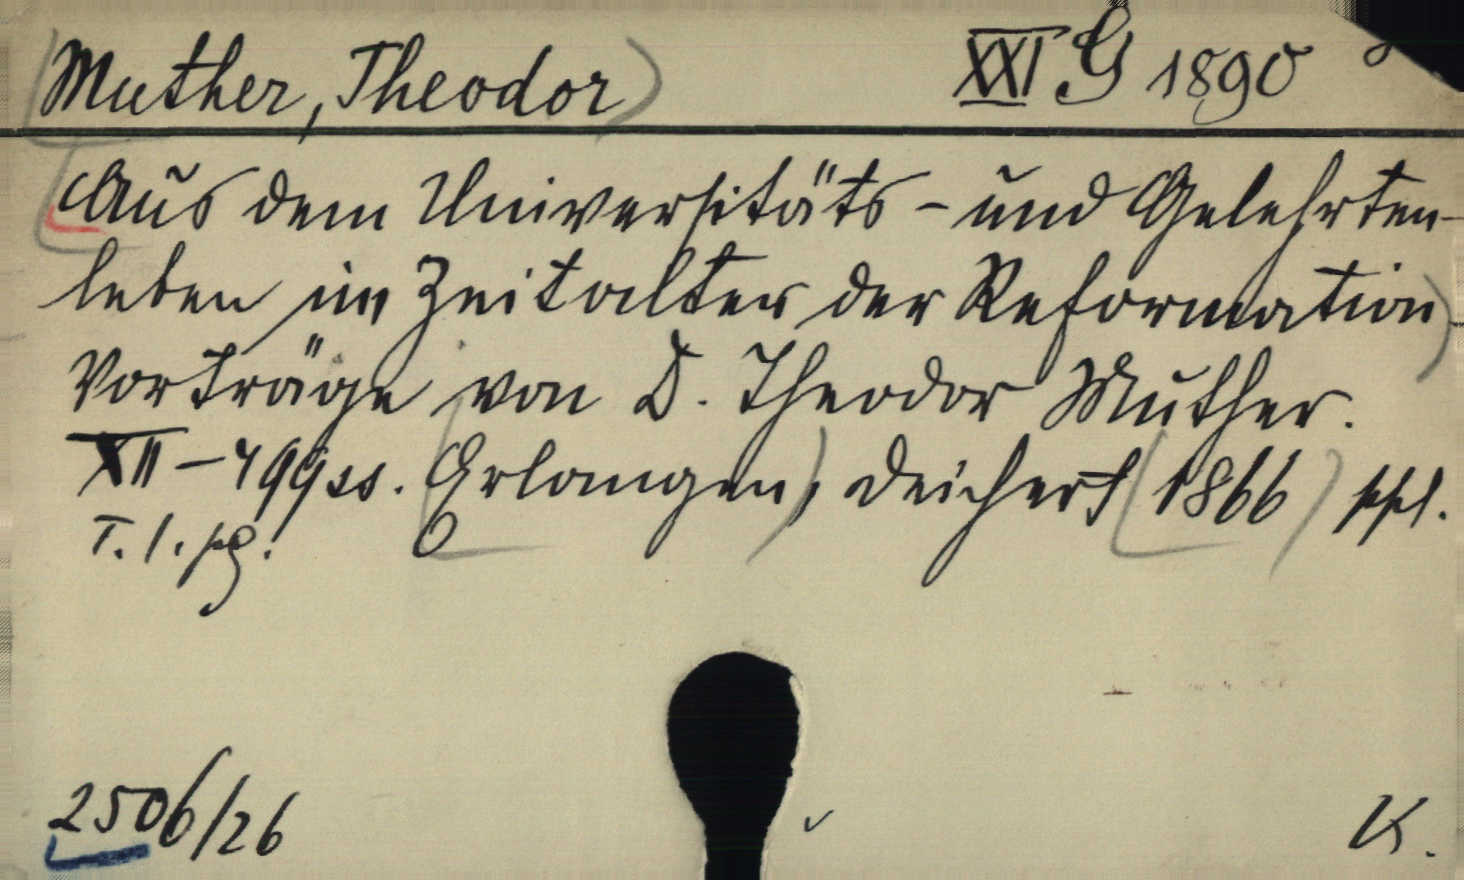 Muther, Theodor XXI G 1890
Aus dem Universitäts- und Gelehrten-
leben im Zeitalter der Reformation
Vorträge von D. Theodor Muther.
XII-499 ss. Erlangen, Deichert 1866 ppl.
T. 1. pg.
2506/26 K.